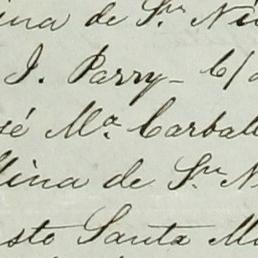 ina de Sn. Ni
J. Parry - C/a
sé Ma. Carbal
lina de Sn. N
sto Santa Ma